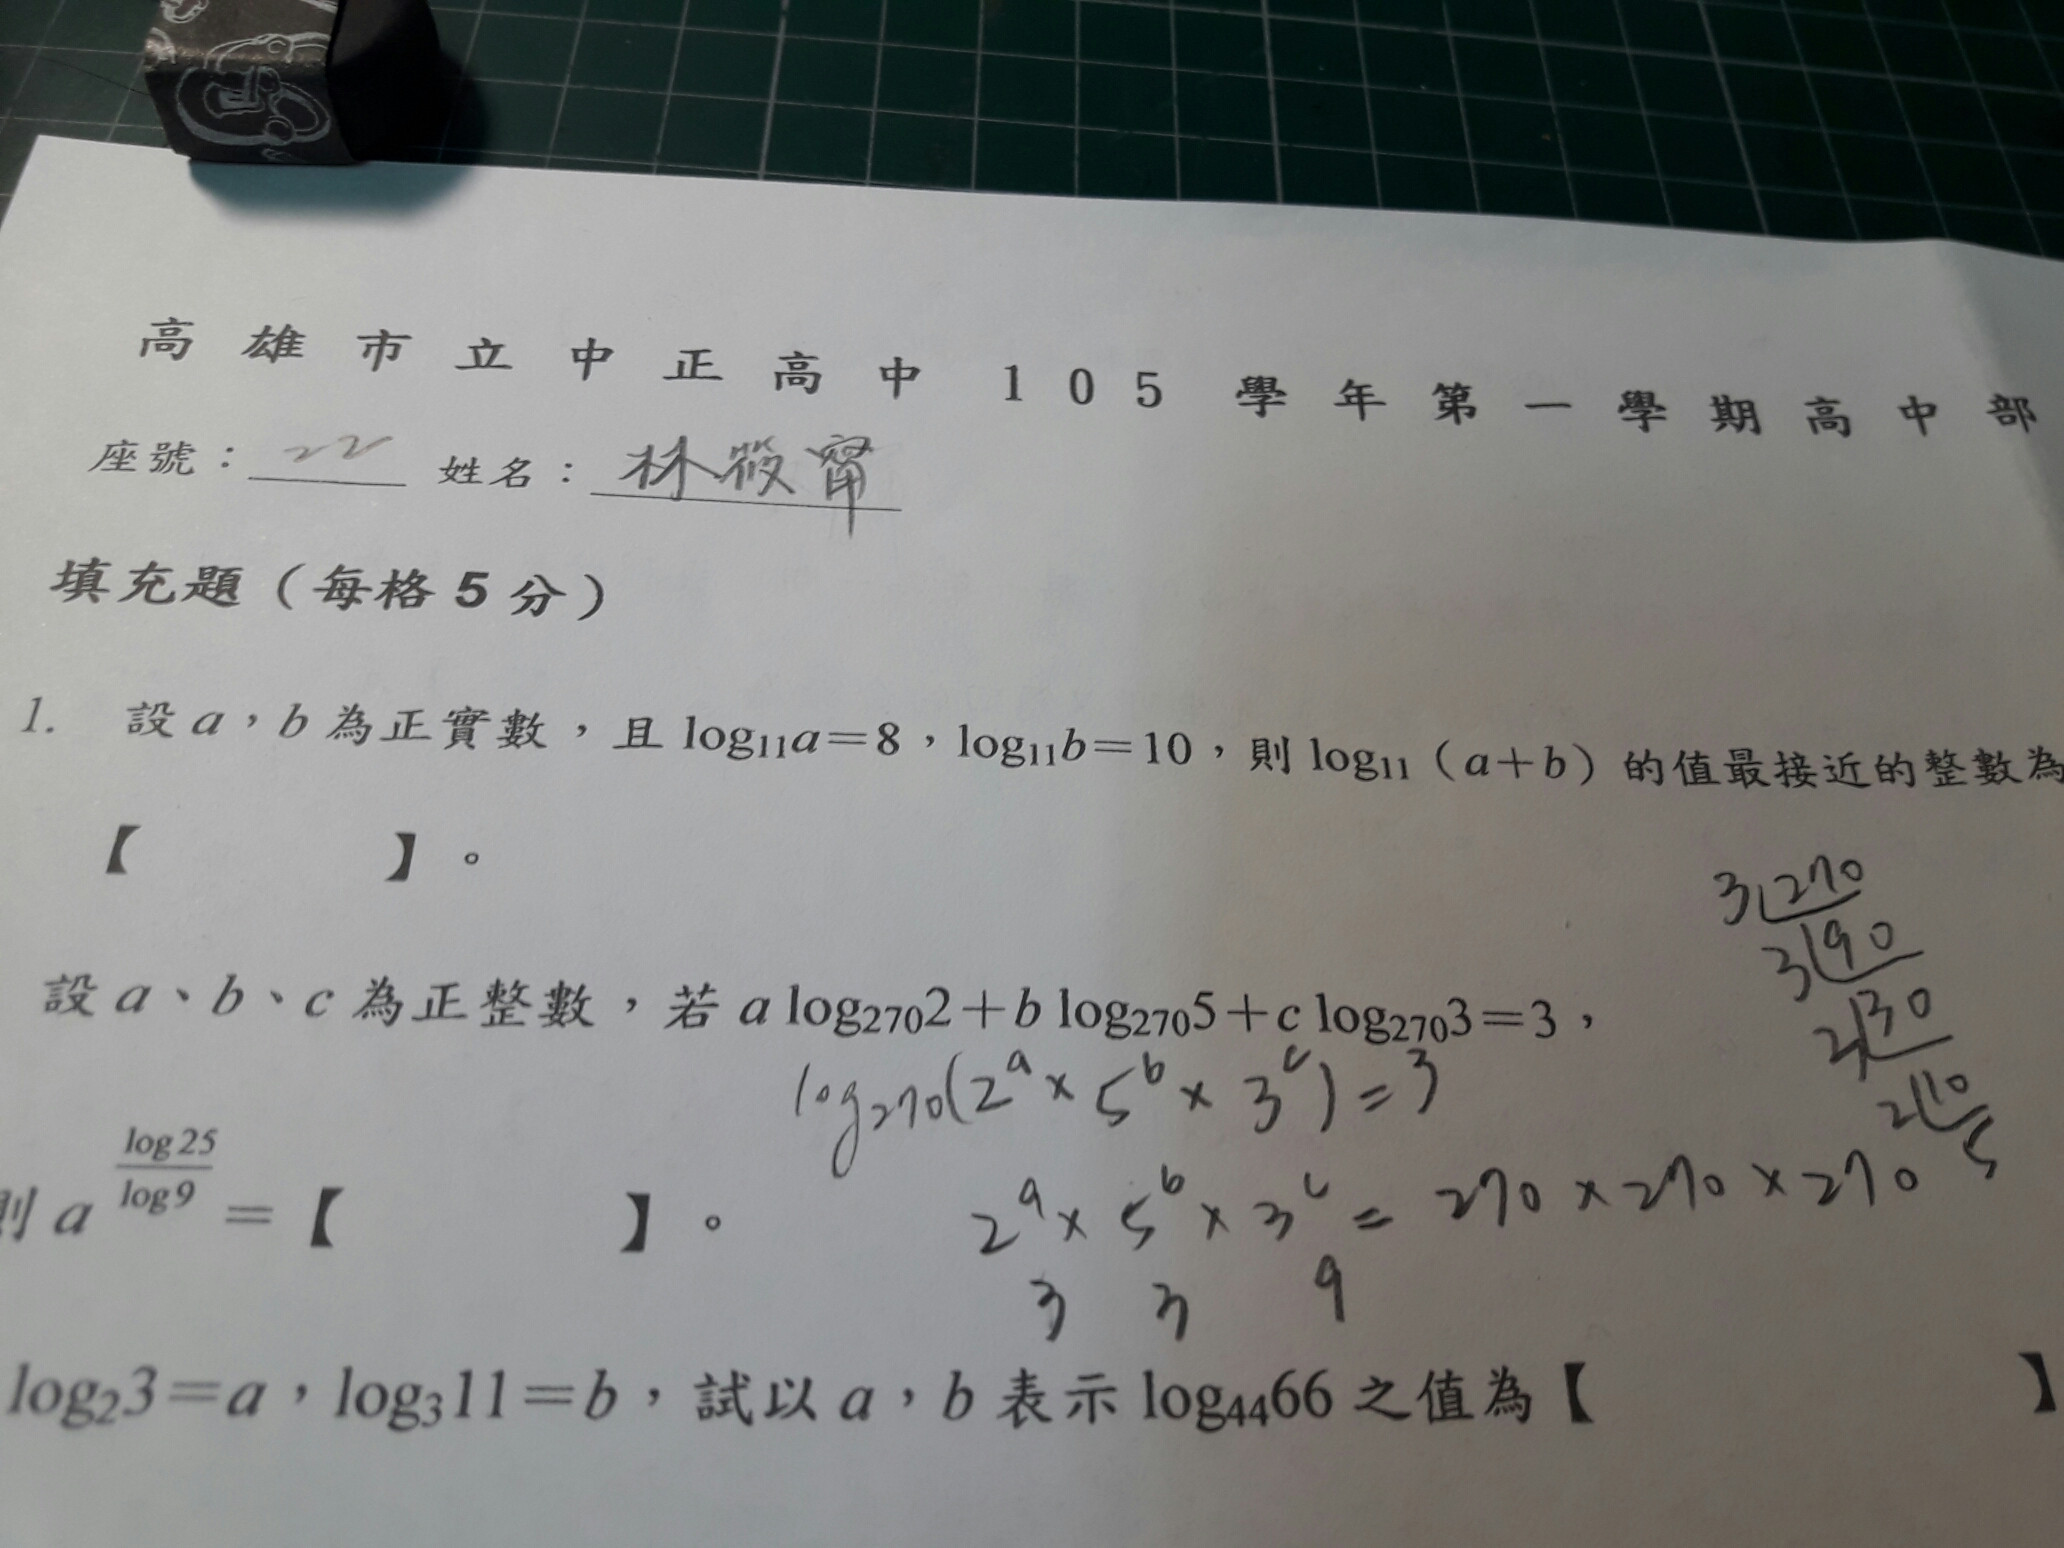 高雄市立中正高中105學年第一學期高中部
座號：22 姓名：林筱甯
填充題（每格5分）
1. 設a，b為正實數，且log₁₁a=8，log₁₁b=10，則log₁₁（a+b）的值最接近的整數為
【 】。
3 270
3 90
2 30
2 10
5
設a、b、c為正整數，若a log₂₇₀2+b log₂₇₀5+c log₂₇₀3=3，
log₂₇₀(2ᵃ × 5ᵇ × 3ᶜ) = 3
則 a^(log25/log9) =【 】。
2ᵃ × 5ᵇ × 3ᶜ = 270 × 270 × 270
3 3 9
log₂3=a，log₃11=b，試以a，b表示log₄₄66之值為【 】